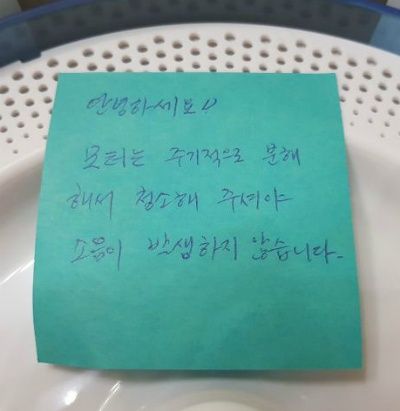 안녕하세요!!
모터는 주기적으로 분해
해서 청소해 주셔야
소음이 발생하지 않습니다.